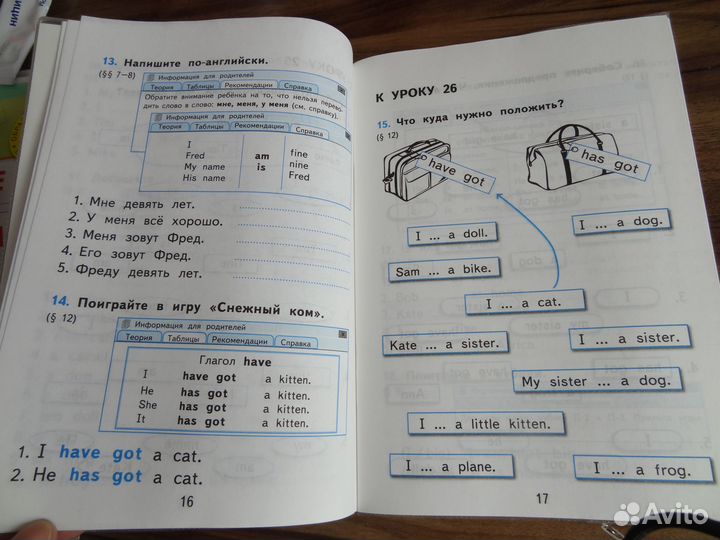 13. Напишите по-английски.
(§§ 7–8)
Информация для родителей
Теория Таблицы Рекомендации Справка
Обратите внимание ребёнка на то, что нельзя перево-
дить слово в слово: мне, меня, у меня (см. справку).
Информация для родителей
Теория Таблицы Рекомендации Справка
I
Fred am fine
My name is nine
His name Fred
1. Мне девять лет.
2. У меня всё хорошо.
3. Меня зовут Фред.
4. Его зовут Фред.
5. Фреду девять лет.
14. Поиграйте в игру «Снежный ком».
(§ 12)
Информация для родителей
Теория Таблицы Рекомендации Справка
Глагол have
I have got a kitten.
He has got a kitten.
She has got a kitten.
It has got a kitten.
1. I have got a cat.
2. He has got a cat.
16
К УРОКУ 26
15. Что куда нужно положить?
(§ 12)
have got
has got
I ... a doll.
I ... a dog.
Sam ... a bike.
I ... a cat.
Kate ... a sister.
I ... a sister.
My sister ... a dog.
I ... a little kitten.
I ... a plane.
I ... a frog.
17
Avito